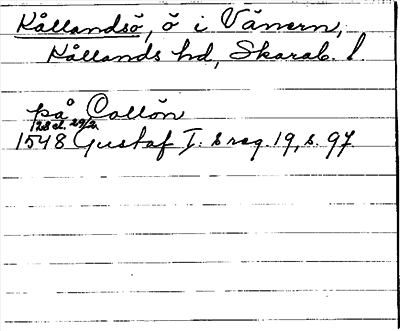 Kållandsö, ö i Vänern,
Kållands hd, Skarab. l.
på Collön
1548 Gustaf I:s reg. 19, s. 97